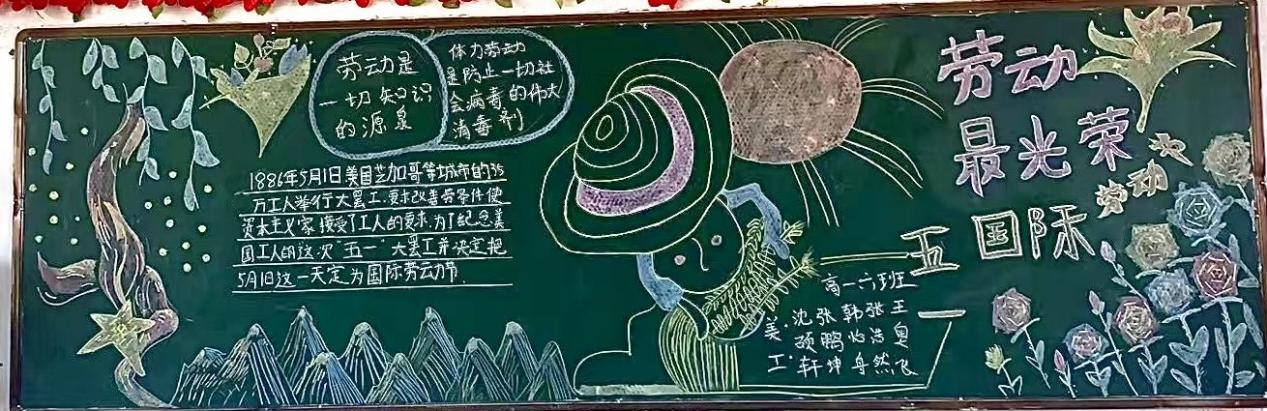 劳动是
一切知识
的源泉
体力劳动
是防止一切社
会病毒的伟大
消毒剂
1886年5月1日美国芝加哥等城市的35
万工人举行大罢工要求改善劳条件使
资本主义家接受了工人的要求.为了纪念美
国工人的这次“五一”大罢工并决定把
5月1日这一天定为国际劳动节.
劳动
最光荣
五一
国际
劳动节
高一六班
美工:
沈 张 韩 张 王
硕 鹏 必 浩
轩 坤 舟 然 飞